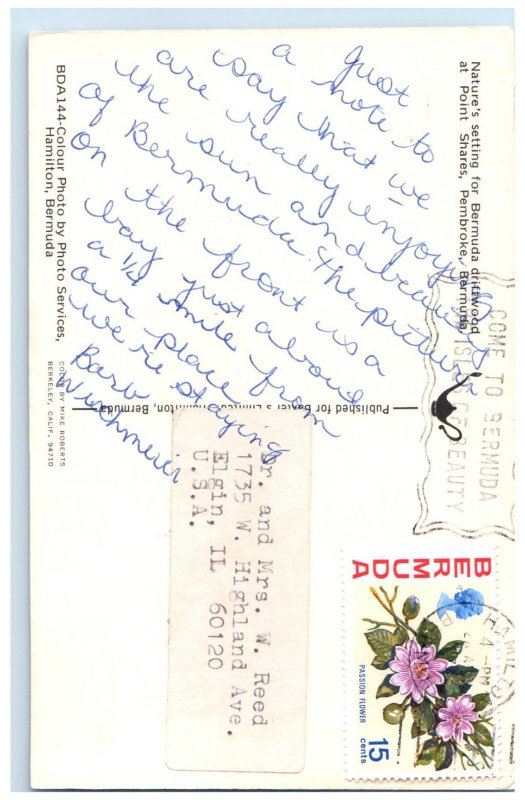 Nature's setting for Bermuda driftwood
at Point Shares, Pembroke, Bermuda.
Just
a note to
say that we
are really enjoying
the sun and beauty
of Bermuda. The picture
on the front is a
bay just about
a 1/4 mile from
our place
we're staying
Barb
BDA144-Colour Photo by Photo Services,
Hamilton, Bermuda
COLOR BY MIKE ROBERTS
BERKELEY, CALIF. 94710
Published for Baxter's Limited, Hamilton, Bermuda
COME TO BERMUDA
ISLE OF BEAUTY
BERMUDA
PASSION FLOWER
15
cents
4-PM
Dr. and Mrs. W. Reed
1735 W. Highland Ave.
Elgin, IL 60120
U.S.A.